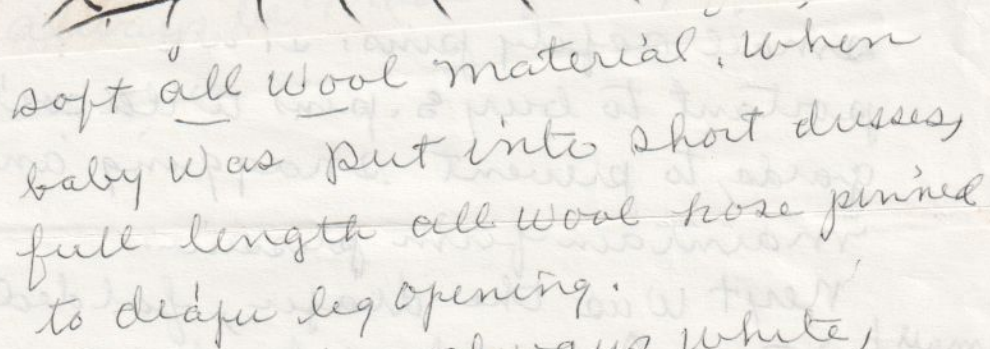 soft all wool material. When
baby was put into short dresses,
full length all wool hose pinned
to diaper leg opening.
always white,